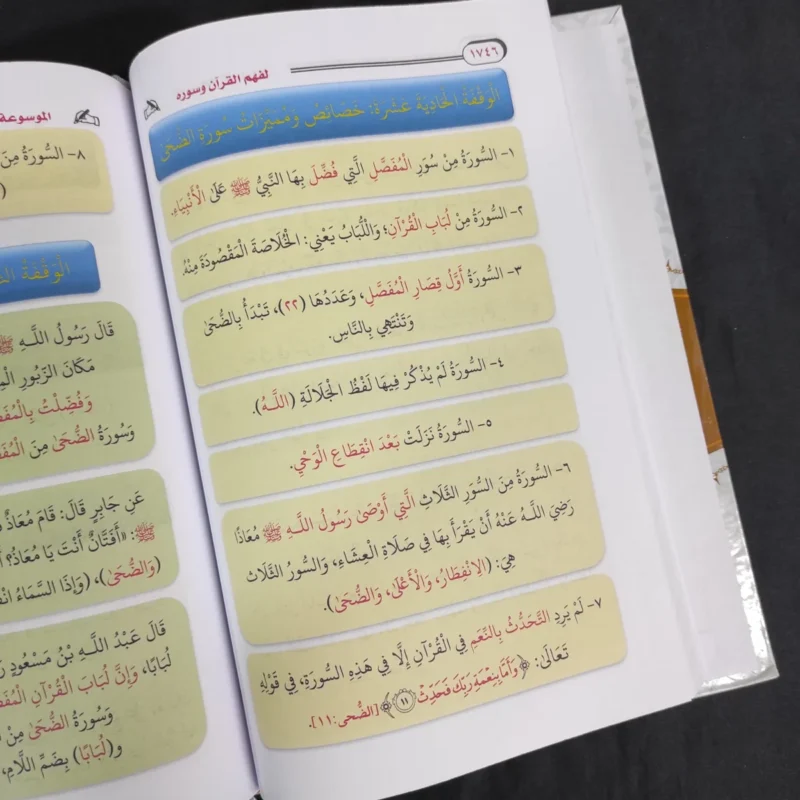 ١٧٤٦
لفهم القرآن وسوره
الْوَقْفَةُ الْحَادِيَةَ عَشْرَةَ: خَصَائِصُ وَمُمَيِّزَاتُ سُورَةِ الضُّحَى
١- السُّورَةُ مِنْ سُوَرِ الْمُفَصَّلِ الَّتِي فُضِّلَ بِهَا النَّبِيُّ ﷺ عَلَى الْأَنْبِيَاءِ.
٢- السُّورَةُ مِنْ لُبَابِ الْقُرْآنِ؛ وَاللُّبَابُ يَعْنِي: الْخُلَاصَةَ الْمَقْصُودَةَ مِنْهُ.
٣- السُّورَةُ أَوَّلُ قِصَارِ الْمُفَصَّلِ، وَعَدَدُهَا (٢٢)، تَبْدَأُ بِالضُّحَى
وَتَنْتَهِي بِالنَّاسِ.
٤- السُّورَةُ لَمْ يُذْكَرْ فِيهَا لَفْظُ الْجَلَالَةِ (اللَّـهُ).
٥- السُّورَةُ نَزَلَتْ بَعْدَ انْقِطَاعِ الْوَحْيِ.
٦- السُّورَةُ مِنَ السُّوَرِ الثَّلَاثِ الَّتِي أَوْصَى رَسُولُ اللَّـهِ ﷺ مُعَاذًا
رَضِيَ اللَّـهُ عَنْهُ أَنْ يَقْرَأَ بِهَا فِي صَلَاةِ الْعِشَاءِ، وَالسُّورُ الثَّلَاثُ
هِيَ: (الِانْفِطَارُ، وَالْأَعْلَى، وَالضُّحَى).
٧- لَمْ يَرِدِ التَّحَدُّثُ بِالنِّعَمِ فِي الْقُرْآنِ إِلَّا فِي هَذِهِ السُّورَةِ، فِي قَوْلِهِ
تَعَالَى: ﴿وَأَمَّا بِنِعْمَةِ رَبِّكَ فَحَدِّثْ ۝١١﴾ [الضُّحَى:١١].
الموسوعة
٨- السُّورَةُ مِنَ
الْوَقْفَةُ
قَالَ رَسُولُ اللَّـهِ ﷺ
مَكَانَ الزَّبُورِ
وَفُضِّلْتُ بِالْمُفَ
وَسُورَةُ الضُّحَى مِنَ
عَنِ جَابِرٍ قَالَ: قَامَ مُعَاذٌ
ﷺ: «أَفَتَّانٌ أَنْتَ يَا مُعَاذُ؟
(وَالضُّحَى)، (وَإِذَا السَّمَاءُ
قَالَ عَبْدُ اللَّـهِ بْنُ مَسْعُودٍ
لُبَابًا، وَإِنَّ لُبَابَ الْقُرْآنِ
وَسُورَةُ الضُّحَى مِنْ
و(لُبَابًا) بِضَمِّ اللَّامِ،